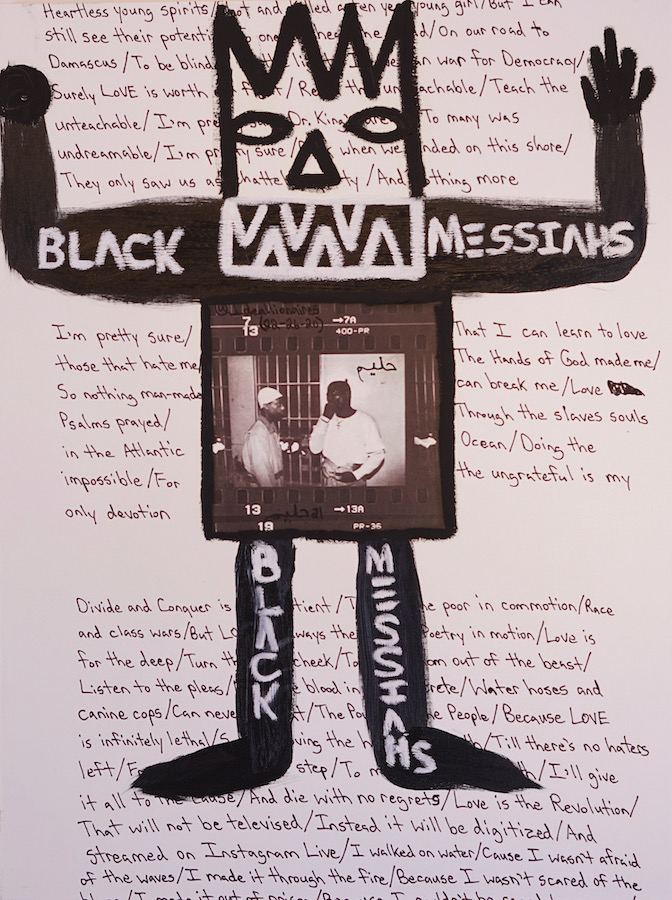 Heartless young spirits/Shot and killed a ten year young girl/But I can
still see their potential one hea he d/On our road to
Damascus/To be blind the li I've been war for Democracy/
Surely LOVE is worth fight/Re th un achable/Teach the
unteachable/I'm pre Dr. King were To many was
undreamable/I'm pretty sure/ when we landed on this shore/
They only saw us as chattel ty/And nothing more
BLACK MESSIAHS
I'm pretty sure/ That I can learn to love
those that hate me/ The Hands of God made me/
So nothing man-made can break me/Love
Psalms prayed/ Through the slaves souls
in the Atlantic Ocean/Doing the
impossible/For the ungrateful is my
only devotion
@Idealionaires
(02-26-20)
7 →7A
13 400-PR
حليم
13 →13A
19 PR-36
BLACK
MESSIAHS
Divide and Conquer is tient/T e poor in commotion/Race
and class wars/But LO ways the Poetry in motion/Love is
for the deep/Turn th cheek/To om out of the beast/
Listen to the pleas/ e blood in rete/Water hoses and
canine cops/Can neve t/The Po e People/Because LOVE
is infinitely lethal/S ving the h th/Till there's no haters
left/F step/To m h/I'll give
it all to the cause/And die with no regrets/Love is the Revolution/
That will not be televised/Instead it will be digitized/And
streamed on Instagram Live/I walked on water/Cause I wasn't afraid
of the waves/I made it through the fire/Because I wasn't scared of the